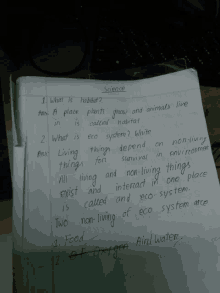 Science
1 What is habitat?
Ans A place plants grow and animals live
in is called habitat
2 What is eco system? Write
Ans Living things depend on non-living
things for survival in environment
All living and non-living things
exist and interact in one place
is called and eco system.
Two non-living of eco system are
1 Food
Air/water